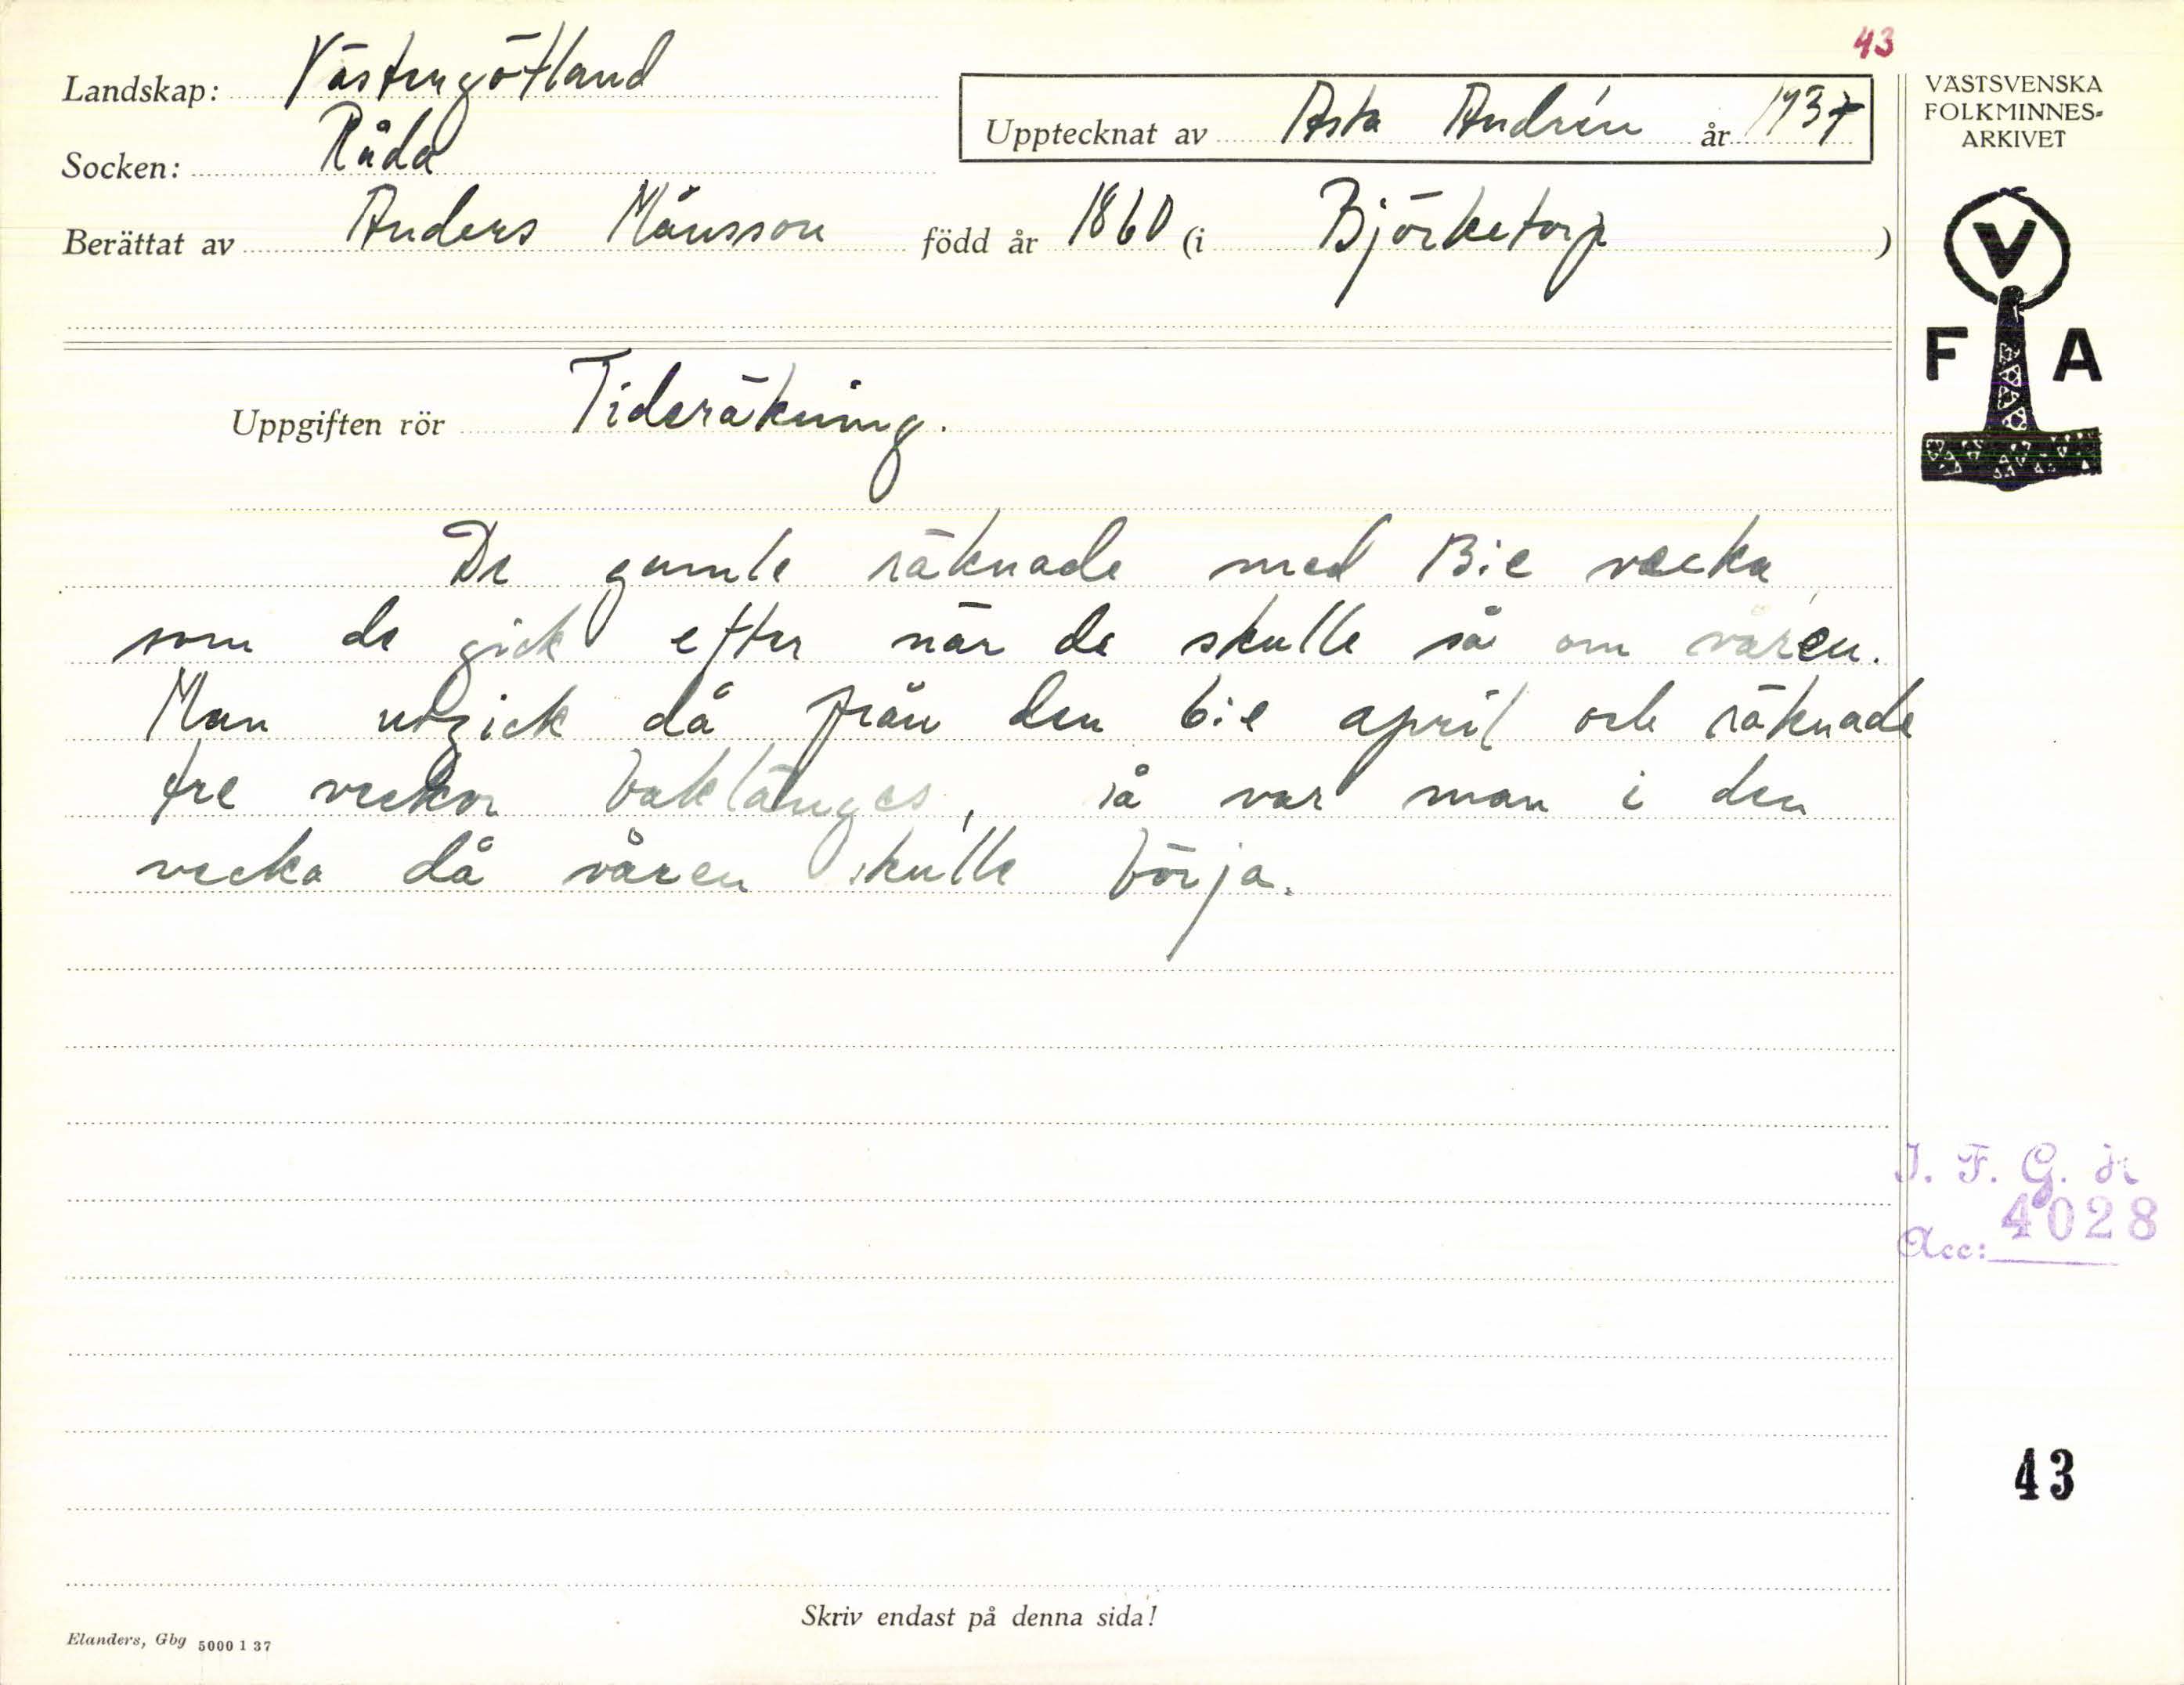 43
Landskap: Västergötland
Socken: Råda
Upptecknat av Asta Andrén år 1937
Berättat av Anders Månsson född år 1860 (i Björketorp)
VÄSTSVENSKA
FOLKMINNES-
ARKIVET
V
F A
Uppgiften rör Tideräkning.
De gamle räknade med 13:e vecka,
som de gick efter när de skulle så om våren.
Man utgick då från den 6:e april och räknade
tre veckor baklänges, så var man i den
vecka då våren skulle börja.
I. F. G. H
Acc: 4028
43
Skriv endast på denna sida!
Elanders, Gbg 5000 1 37